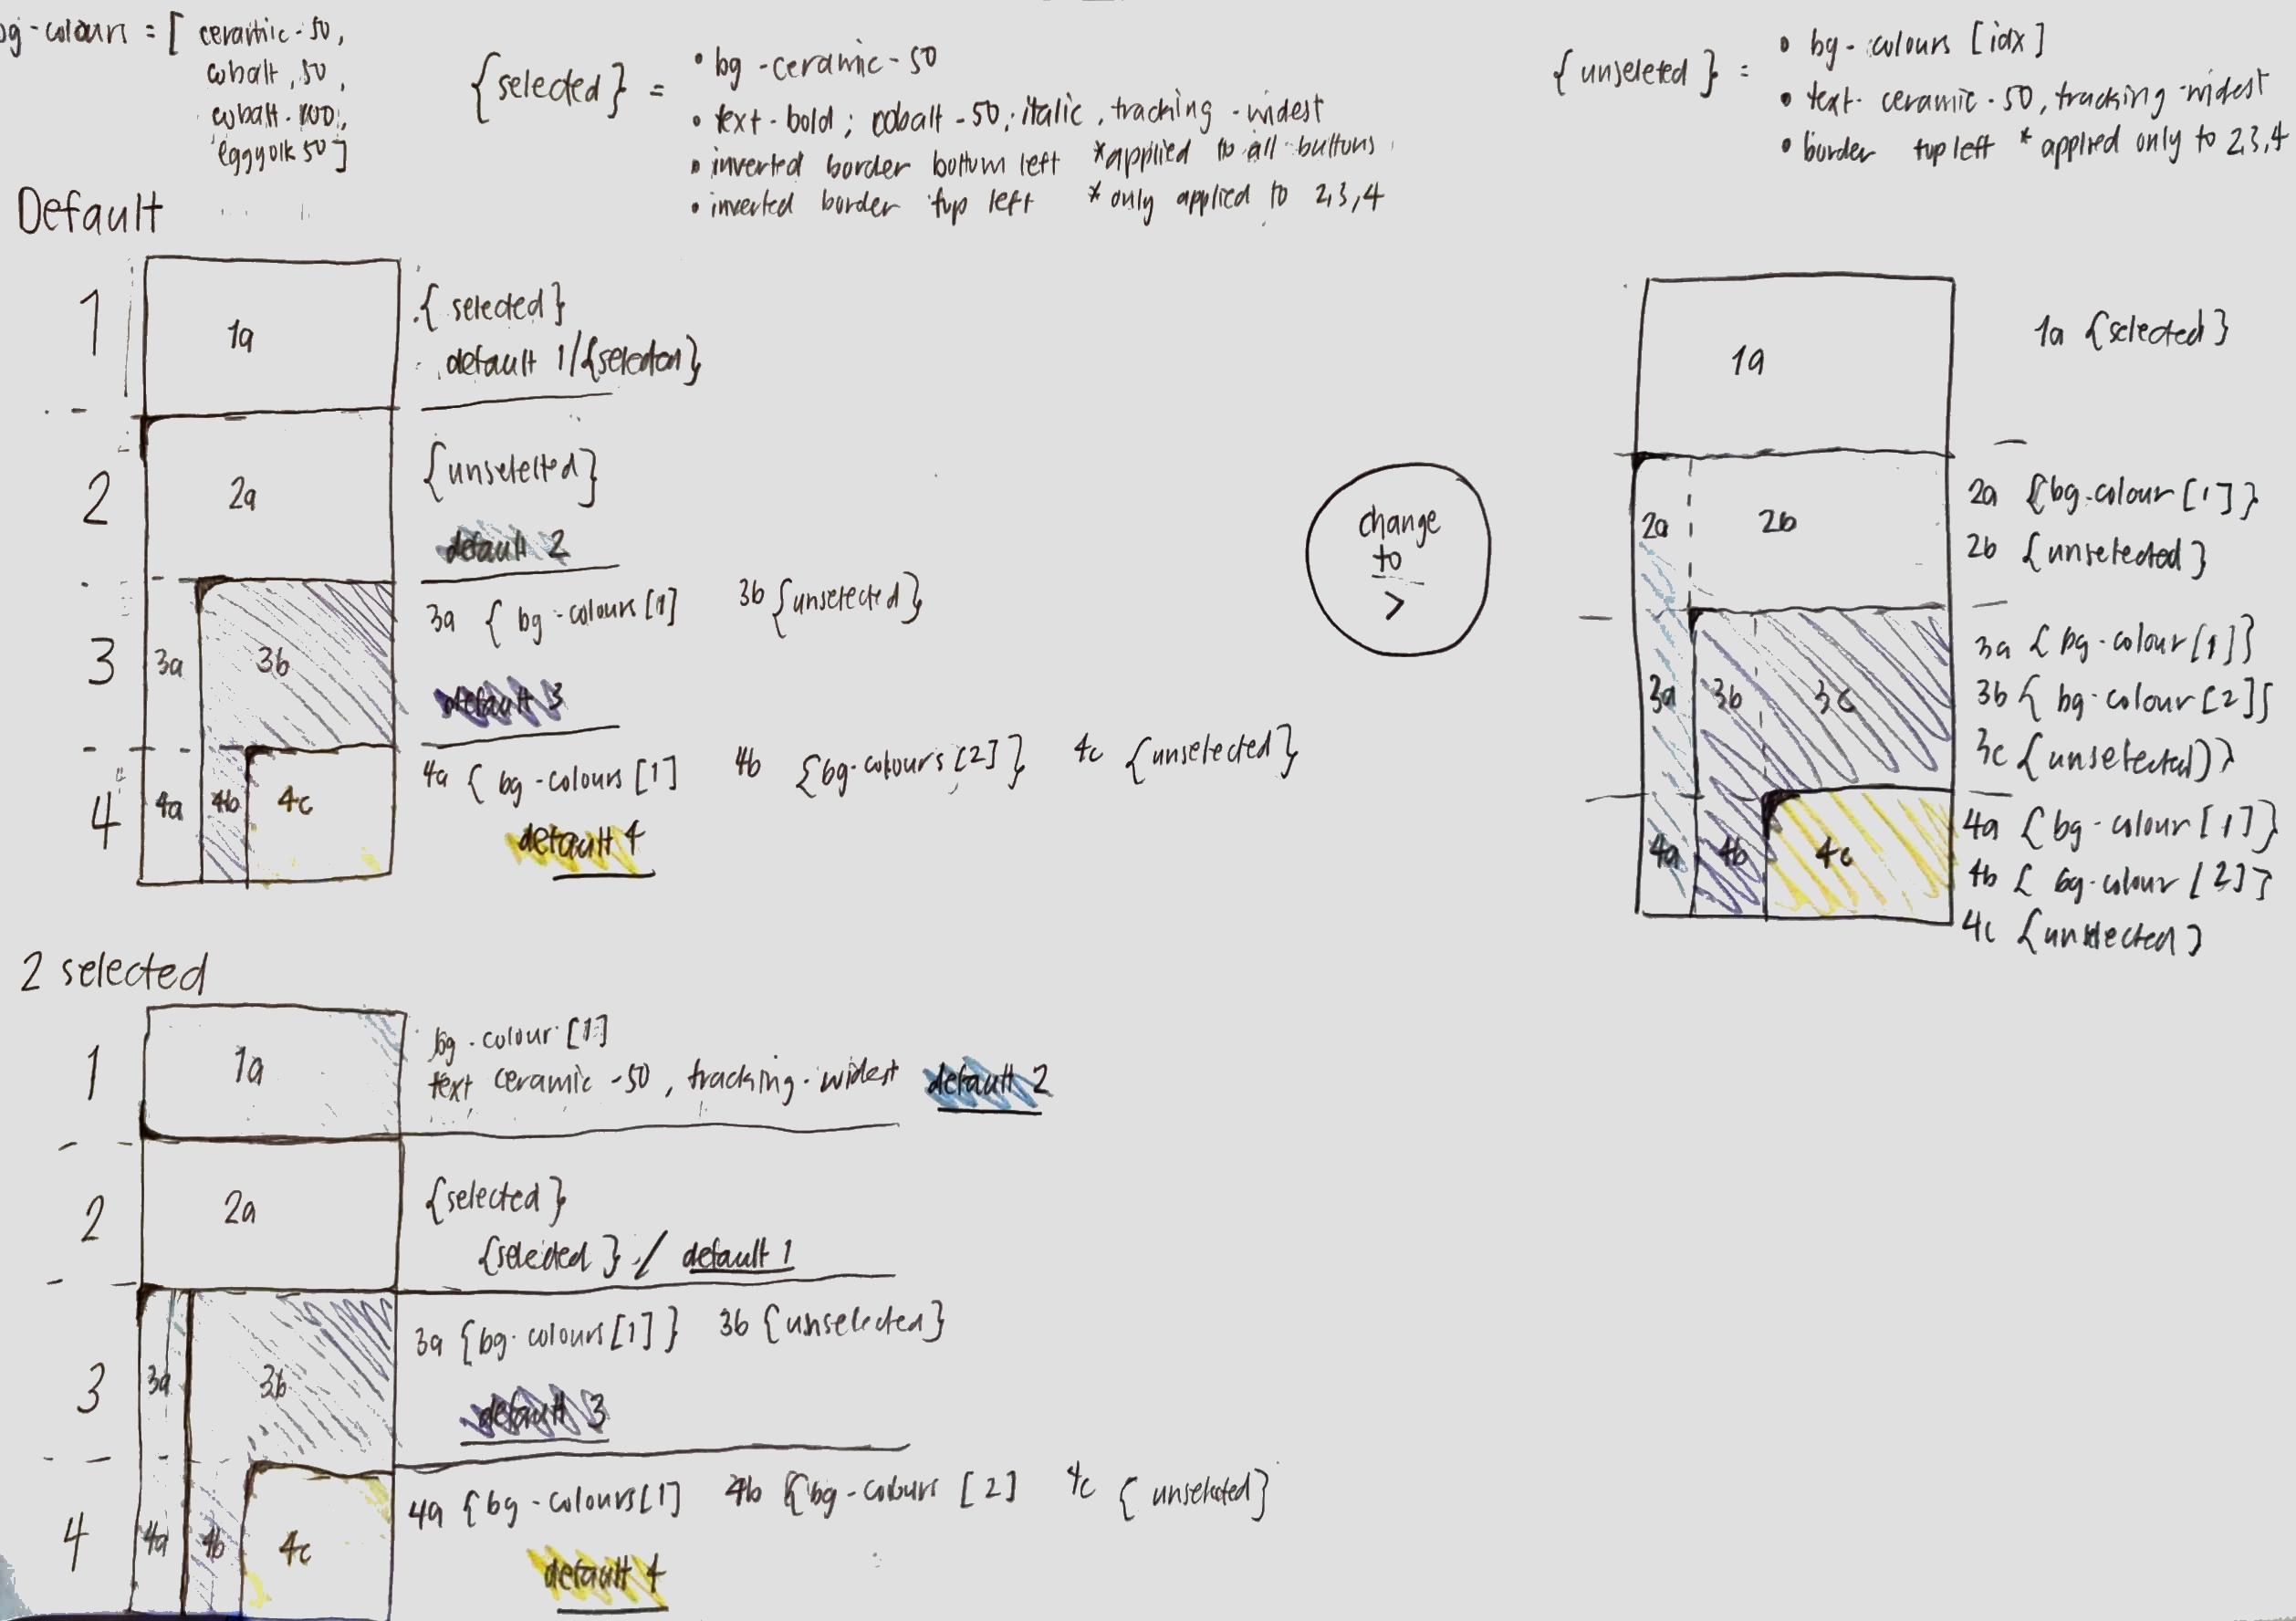 bg-colours = [ ceramic-50,
cobalt, 50,
cobalt-100,
eggyolk 50]
{selected} =
• bg-ceramic-50
• text-bold; cobalt-50; italic, tracking-widest
• inverted border bottom left *applied to all buttons
• inverted border top left * only applied to 2,3,4
{unseleted} =
• bg-colours [idx]
• text-ceramic-50, tracking-widest
• border top left * applied only to 2,3,4
Default
1
1a
{selected}
default 1/{selected}
2
2a
{unselected}
default 2
3
3a
3b
3a { bg-colours[1]
3b {unselected}
default 3
4
4a
4b
4c
4a { bg-colours[1]
4b {bg-colours[2]}
4c {unselected}
default 4
change
to
>
1a
1a {selected}
2a
2b
2a {bg-colour[1]}
2b {unselected}
3a
3b
3c
3a {bg-colour[1]}
3b { bg-colour[2]}
3c {unselected)}
4a
4b
4c
4a {bg-colour[1]}
4b { bg-colour[2]}
4c {unselected}
2 selected
1
1a
bg-colour[1]
text ceramic-50, tracking-widest
default 2
2
2a
{selected}
{selected} / default 1
3
3a
3b
3a {bg-colours[1]}
3b {unselected}
default 3
4
4a
4b
4c
4a {bg-colours[1]
4b {bg-colours [2]
4c {unselected}
default 4